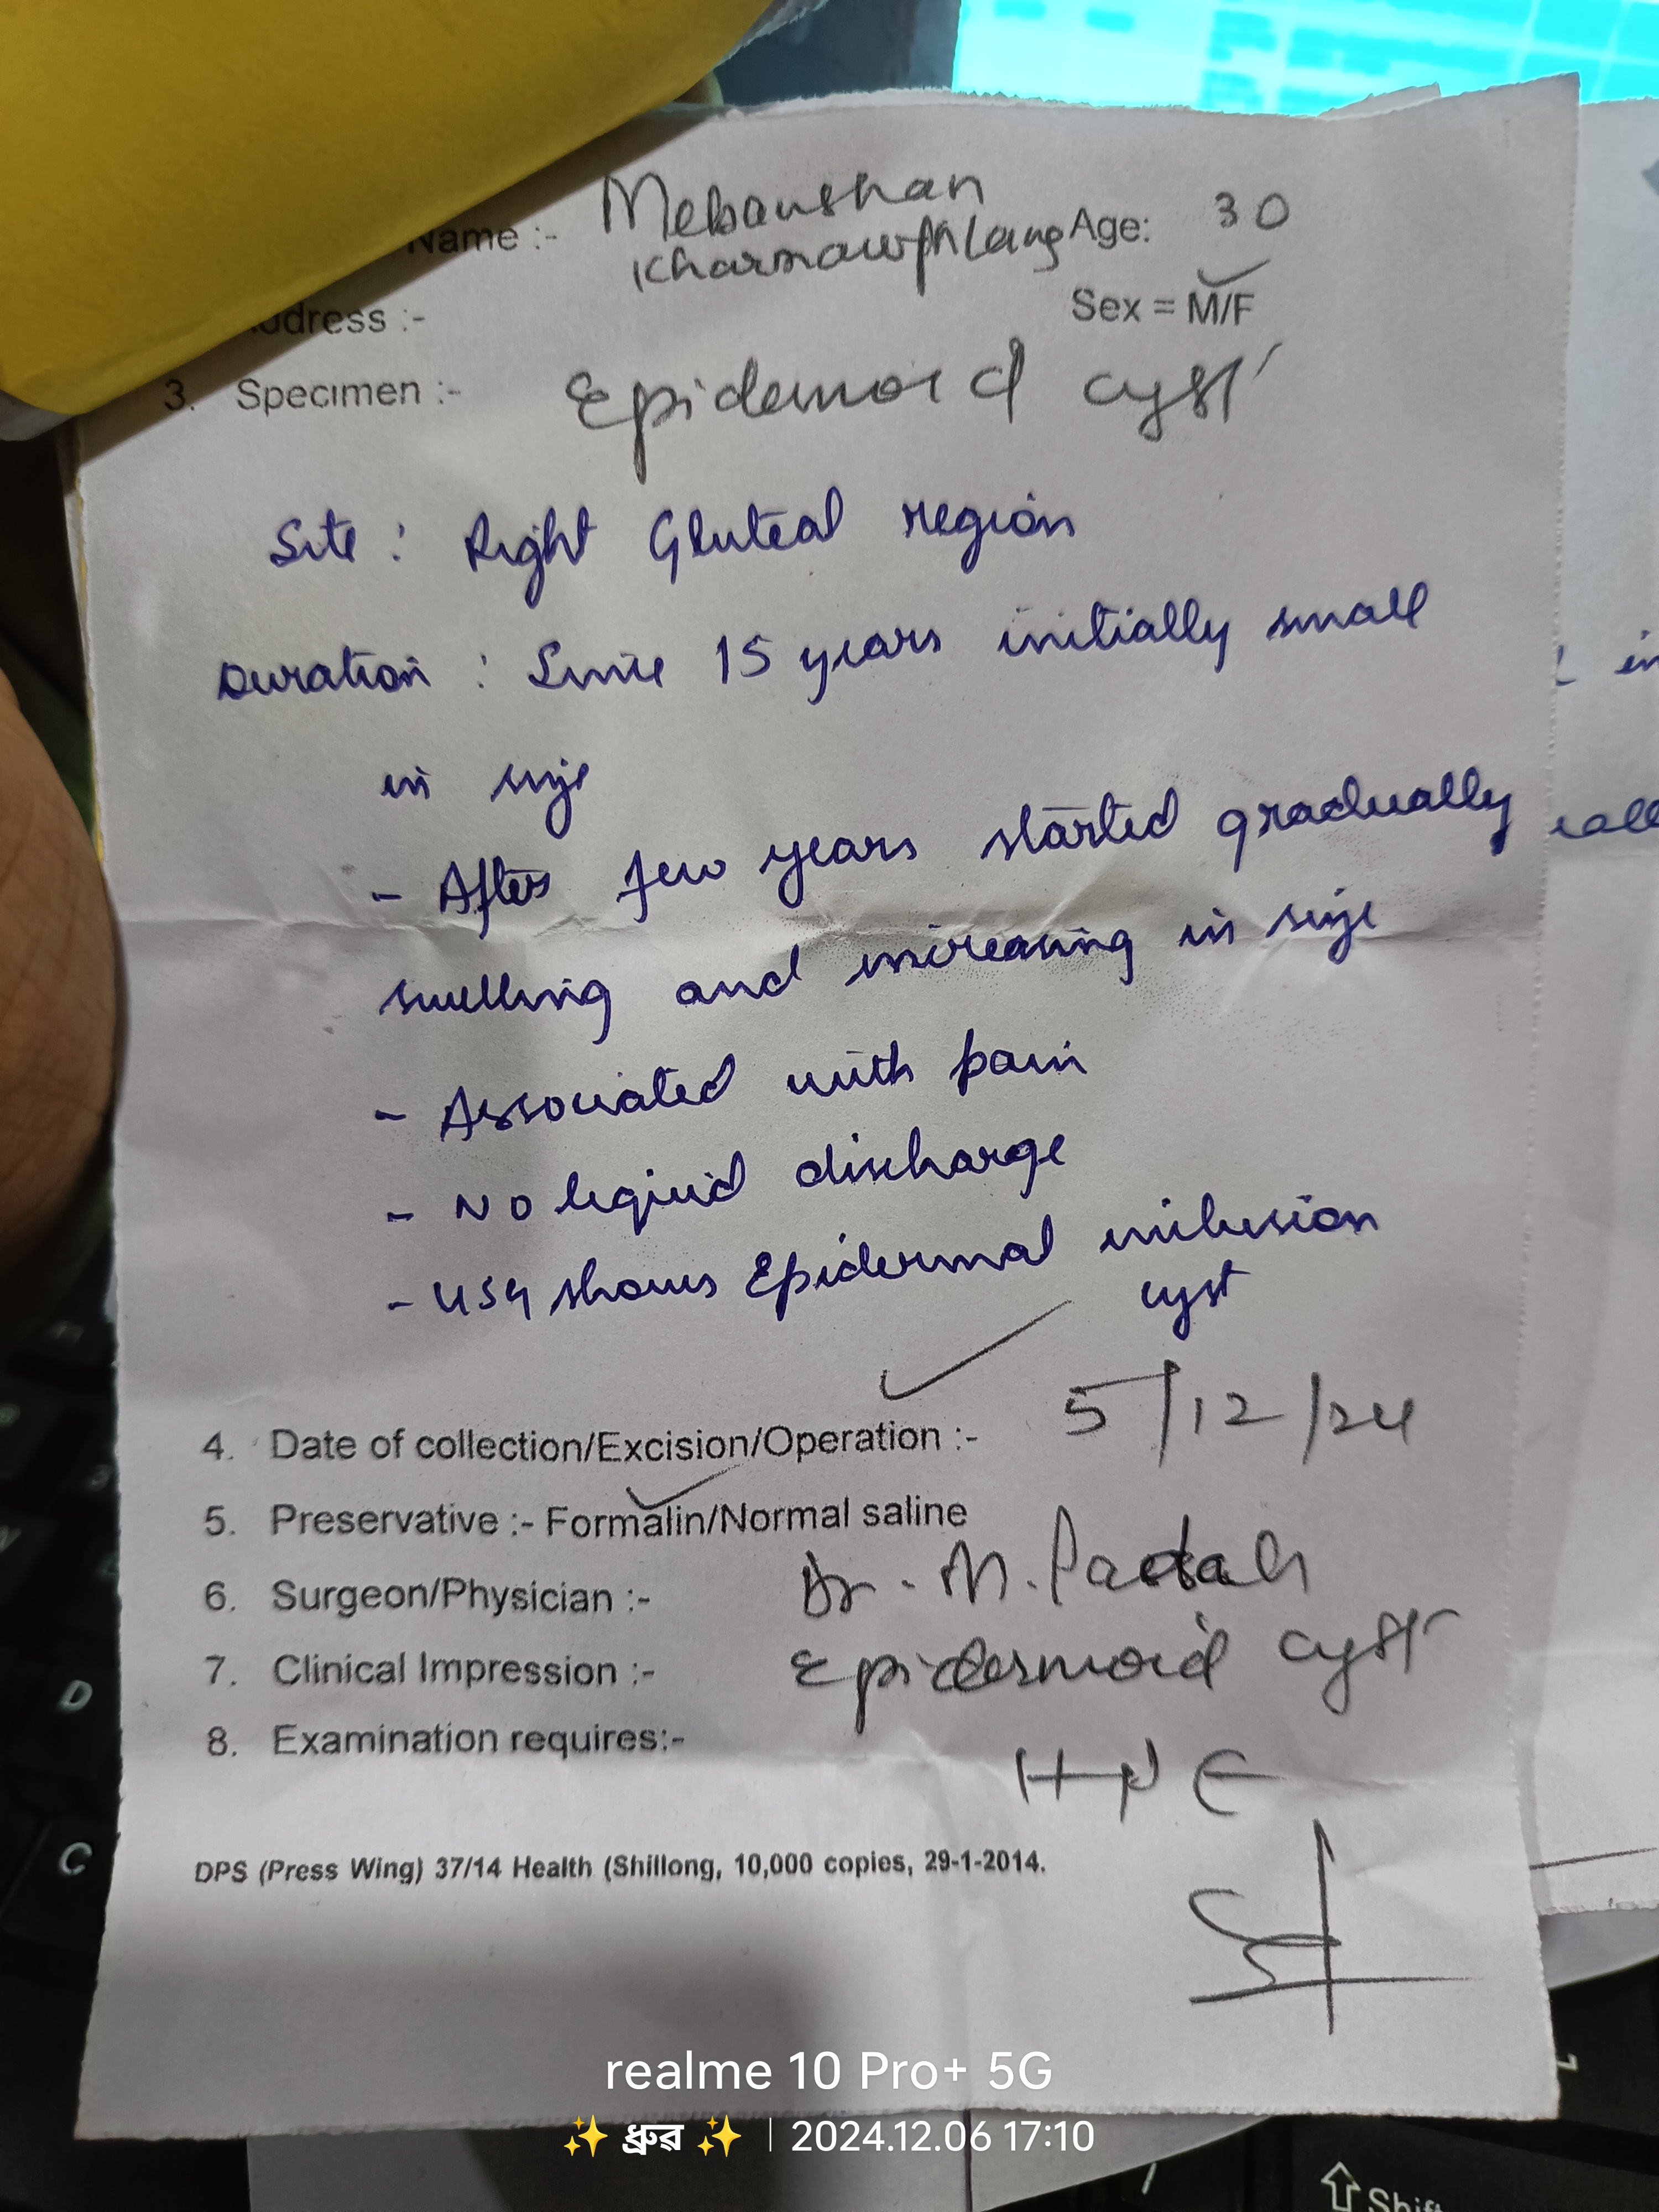 Name :- Mebanshan
Kharmawphlang Age: 30
Address :-
Sex = M/F
3. Specimen :- Epidemoid cyst
Site : Right Gluteal region
Duration : Since 15 years initially small
in size
- After few years started gradually
swelling and increasing in size
- Associated with pain
- No liquid discharge
- USG shows Epidermal inclusion
cyst
4. Date of collection/Excision/Operation :- 5/12/24
5. Preservative :- Formalin/Normal saline
6. Surgeon/Physician :- Dr. M.
7. Clinical Impression :- Epidermoid cyst
8. Examination requires:- HPE
DPS (Press Wing) 37/14 Health (Shillong, 10,000 copies, 29-1-2014.
realme 10 Pro+ 5G
✨ ধ্ৰুৱ ✨ | 2024.12.06 17:10
D
C
Shift